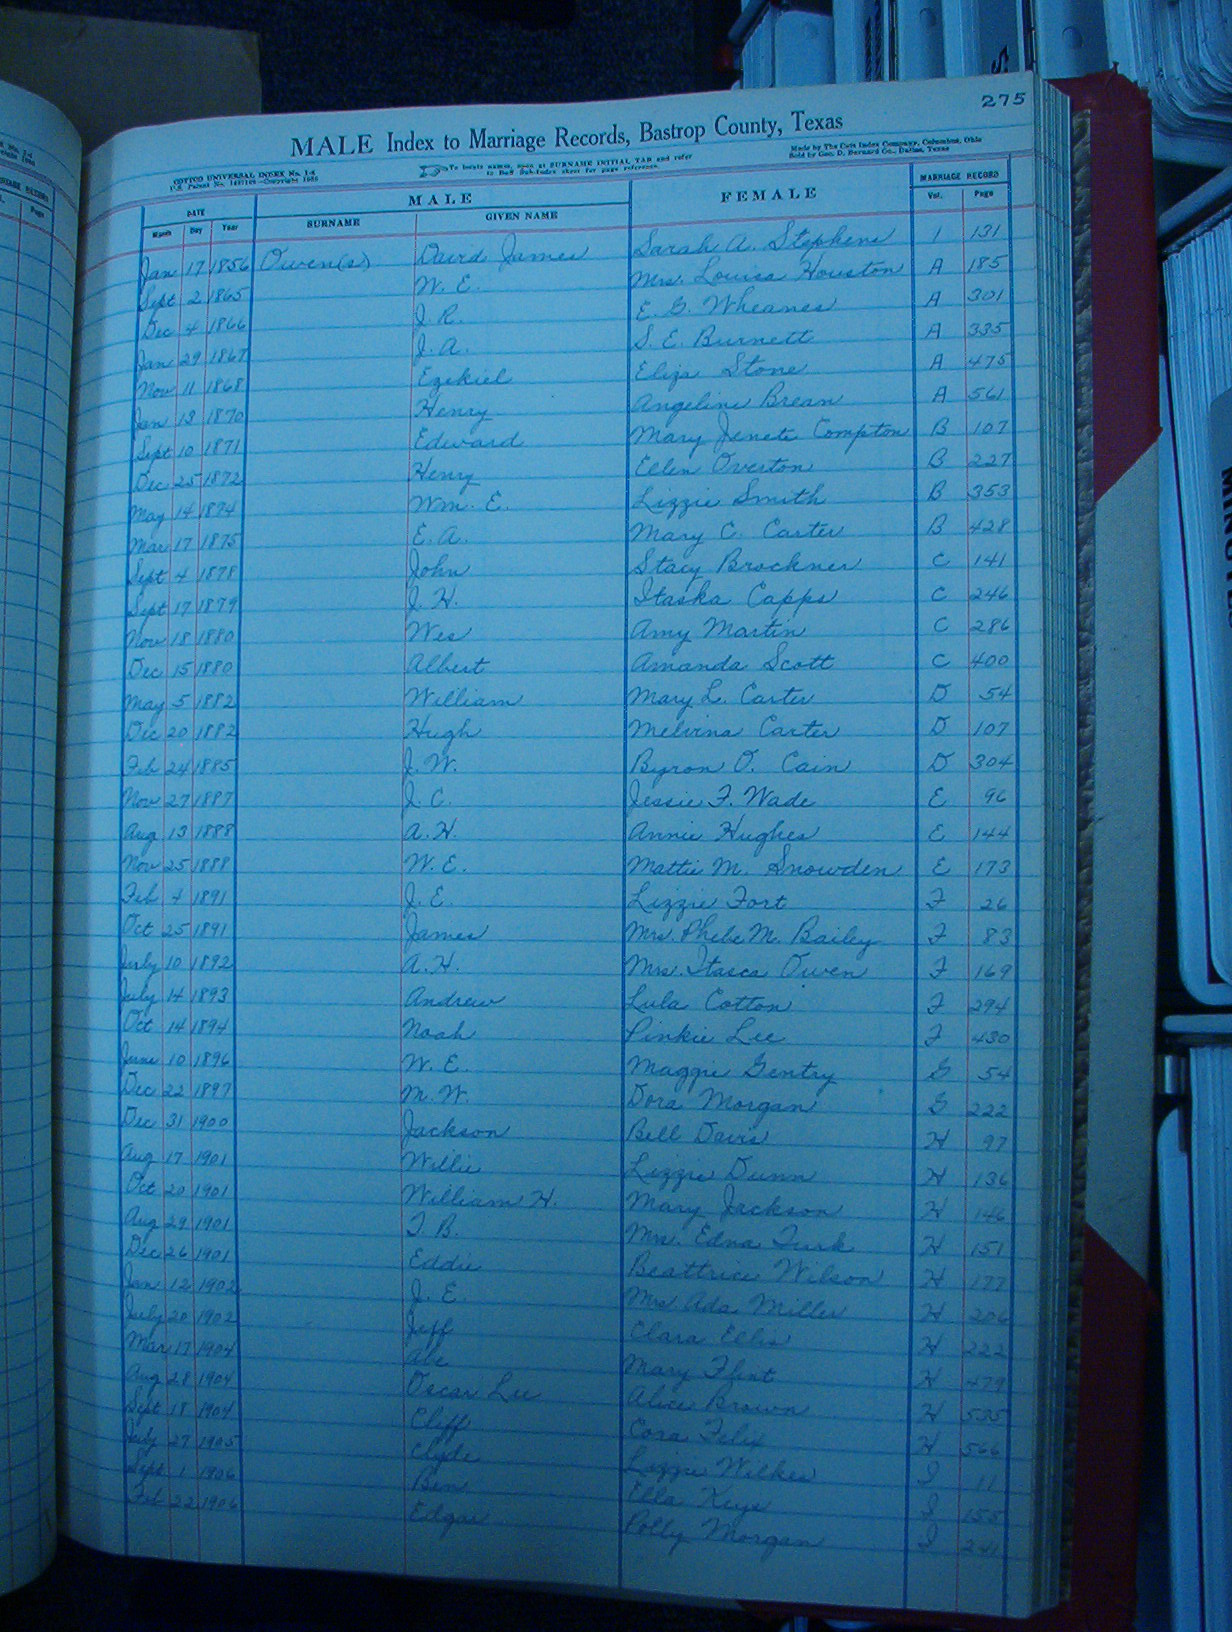 275
MALE Index to Marriage Records, Bastrop County, Texas
COTTCO UNIVERSAL INDEX No. 1-d
U.S. Patent No. Copyright
To locate names, open at SURNAME INITIAL TAB and refer
to Buff Sub-Index sheet for page reference
Made by The Cott Index Company, Columbus, Ohio
Sold by Geo. D. Barnard Co., Dallas, Texas
DATE MALE FEMALE MARRIAGE RECORD
Month Day Year SURNAME GIVEN NAME Vol. Page
Jan 17 1856 Owen(s) David James Sarah A. Stephens 1 131
Sept 2 1865 W. E. Mrs. Louisa Houston A 185
Dec 4 1866 J. R. E. G. Wheanes A 301
Jan 29 1867 J. A. S. E. Burnett A 335
Nov 11 1868 Ezekiel Eliza Stone A 475
Jan 13 1870 Henry Angeline Brean A 561
Sept 10 1871 Edward Mary Jenete Compton B 107
Dec 25 1872 Henry Ellen Overton B 227
May 14 1874 Wm. E. Lizzie Smith B 353
Mar 17 1875 E. A. Mary C. Carter B 428
Sept 4 1878 John Stacy Brockner C 141
Sept 17 1879 J. H. Itaska Capps C 246
Nov 18 1880 Wes Amy Martin C 286
Dec 15 1880 Albert Amanda Scott C 400
May 5 1882 William Mary L. Carter D 54
Dec 20 1882 Hugh Melvina Carter D 107
Feb 24 1885 J. W. Byron O. Cain D 304
Nov 27 1887 J. C. Jessie F. Wade E 96
Aug 13 1888 A. H. Annie Hughes E 144
Nov 25 1888 W. E. Mattie M. Snowden E 173
Feb 4 1891 J. E. Lizzie Fort F 26
Oct 25 1891 James Mrs. Phebe M. Bailey F 83
July 10 1892 A. H. Mrs. Itasca Owen F 169
July 14 1893 Andrew Lula Cotton F 294
Oct 14 1894 Noah Pinkie Lee F 430
June 10 1896 W. E. Maggie Gentry G 54
Dec 22 1897 M. W. Dora Morgan G 222
Dec 31 1900 Jackson Bell Davis H 97
Aug 17 1901 Willie Lizzie Dunn H 136
Oct 20 1901 William H. Mary Jackson H 146
Aug 29 1901 T. B. Mrs. Edna Turk H 151
Dec 26 1901 Eddie Beattrice Wilson H 177
Jan 12 1902 J. E. Mrs Ada Miller H 206
July 20 1902 Jeff Clara Ellis H 222
Mar 17 1904 Abe Mary Flint H 479
Aug 28 1904 Oscar Lee Alice Brown H 535
Sept 18 1904 Cliff Cora Felix H 566
July 23 1905 Clyde Lizzie Wilkes I 11
Sept 1 1906 Ben Ella Keys I 155
Feb 22 1906 Edgar Polly Morgan I 241